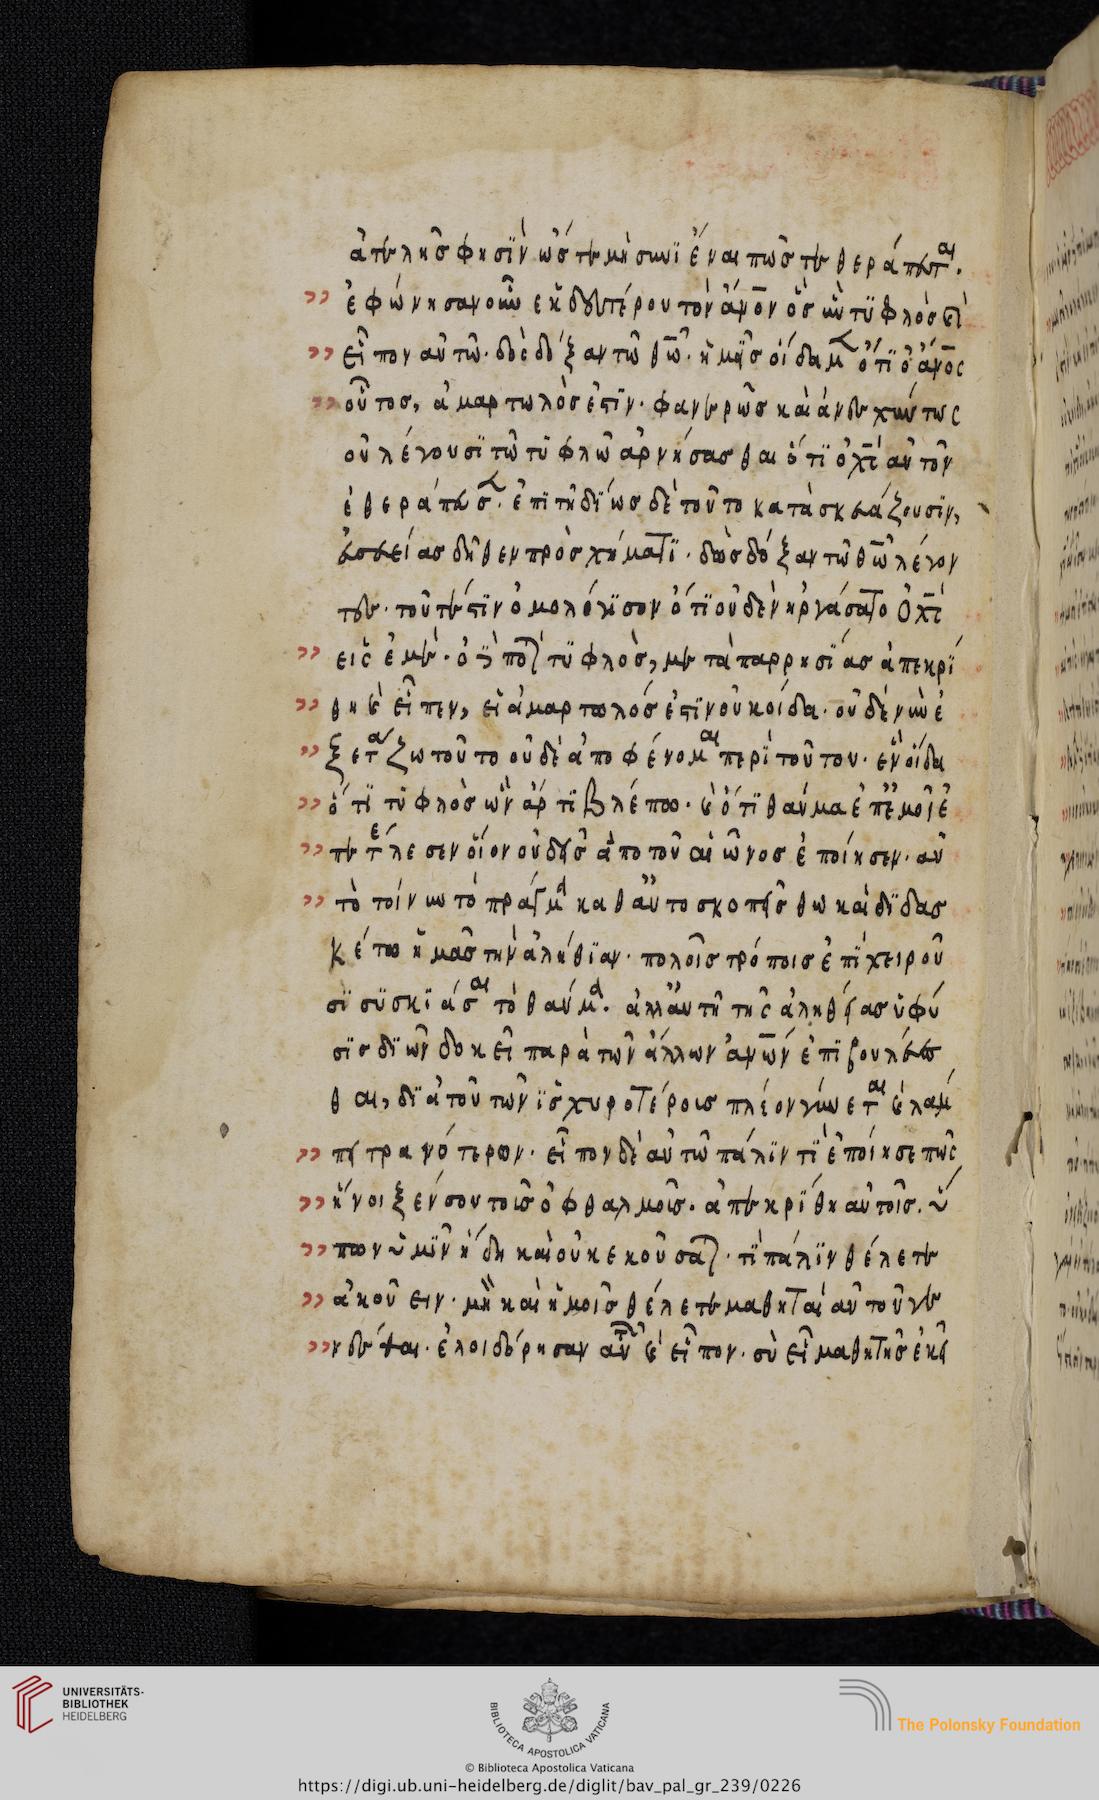 ἀπελκῆς φησὶν ὥστε μὴ συνϊέναι πῶς τεθεράπευται.
ἐφώνησαν οὖν ἐκ δευτέρου τὸν ἄνον ὃς ἦν τυφλὸς καὶ
εἶπον αὐτῶ· δὸς δόξαν τῶ θῶ. ἡμεῖς οἴδαμεν ὅτι ὁ ἄνος
οὗτος, ἁμαρτωλὸς ἐστὶν. φανερῶς καὶ ἀνδεχύντως
οὐ λέγουσϊ τῶ τυφλῶ ἀρνήσασθαι ὅτι ὁ χς αὐτὸν
ἐθεράπευσεν. ἐπιτηδίως δὲ τοῦτο κατασκεάζουσϊν,
εὐσεβείας δῆθεν προσχήματϊ. δὸς δόξαν τῶ θῶ λέγον
τες. τουτέστιν ὁμολόγϊσον ὅτι οὐδὲν ἠργάσατο ὁ χς
εἰς ἐμέ. ὁ δέ ποτε τυφλὸς, μετὰ παρρησίας ἀπεκρί
θη καὶ εἶπεν, εἰ ἁμαρτωλός ἐστϊν οὐκ οἶδα. οὐδὲ νῦν ἐ
ξετάζω τοῦτο οὐδὲ ἀποφένομαι περὶ τούτου. ἓν οἶδα
ὅτι τυφλὸς ὢν ἄρτι βλέπω. καὶ ὅτι θαύμα ἐπ' ἐμοὶ ἐ
πετέλεσεν οἷον οὐδεὶς ἀπὸ τοῦ αἰῶνος ἐποίησεν. αὐ
τὸ τοίνυν τὸ πράγμα καθ' αὑτὸ σκοπείσθω καὶ διδασ
κέτω ἡμᾶς τὴν ἀλήθϊαν. πολοῖς τρόποις ἐπιχειροῦ
σϊ συσκϊάσαι τὸ θαύμα. ἀλλ' αὐτὴ τῆς ἀληθείας ὑφύ
σις δι' ὧν δοκεῖ παρὰ τῶν ἄλλων ἀνων ἐπιβουλεύεσ
θαι, διὰ τούτων ἰσχυροτέροις πλέον γίνεται καὶ λαμ
πειτρανότερον. εἶπον δὲ αὐτῶ πάλϊν τί ἐποίησε πῶς
ἤνοιξέν σου τοὺς ὀφθαλμοῖς. ἀπεκρίθη αὐτοῖς. εἶ
πων ὑμῖν ἤδη καὶ οὐκ ἐκούσατε. τί πάλϊν θέλετε
ἀκούειν. μὴ καὶ ἡμοῖς θέλετε μαθηταὶ αὐτοῦ γε
νέσθαι. ἐλοιδόρησαν αὐτὸν καὶ εἶπον. σὺ εἶ μαθητὴς ἐκεί
UNIVERSITÄTS-
BIBLIOTHEK
HEIDELBERG
BIBLIOTECA APOSTOLICA VATICANA
The Polonsky Foundation
© Biblioteca Apostolica Vaticana
https://digi.ub.uni-heidelberg.de/diglit/bav_pal_gr_239/0226